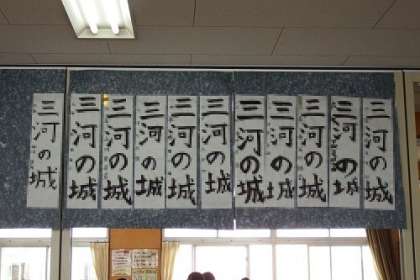 三河の城
三河の城
三河の城
三河の城
三河の城
三河の城
三河の城
三河の城
三河の城
三河の城
三河の城